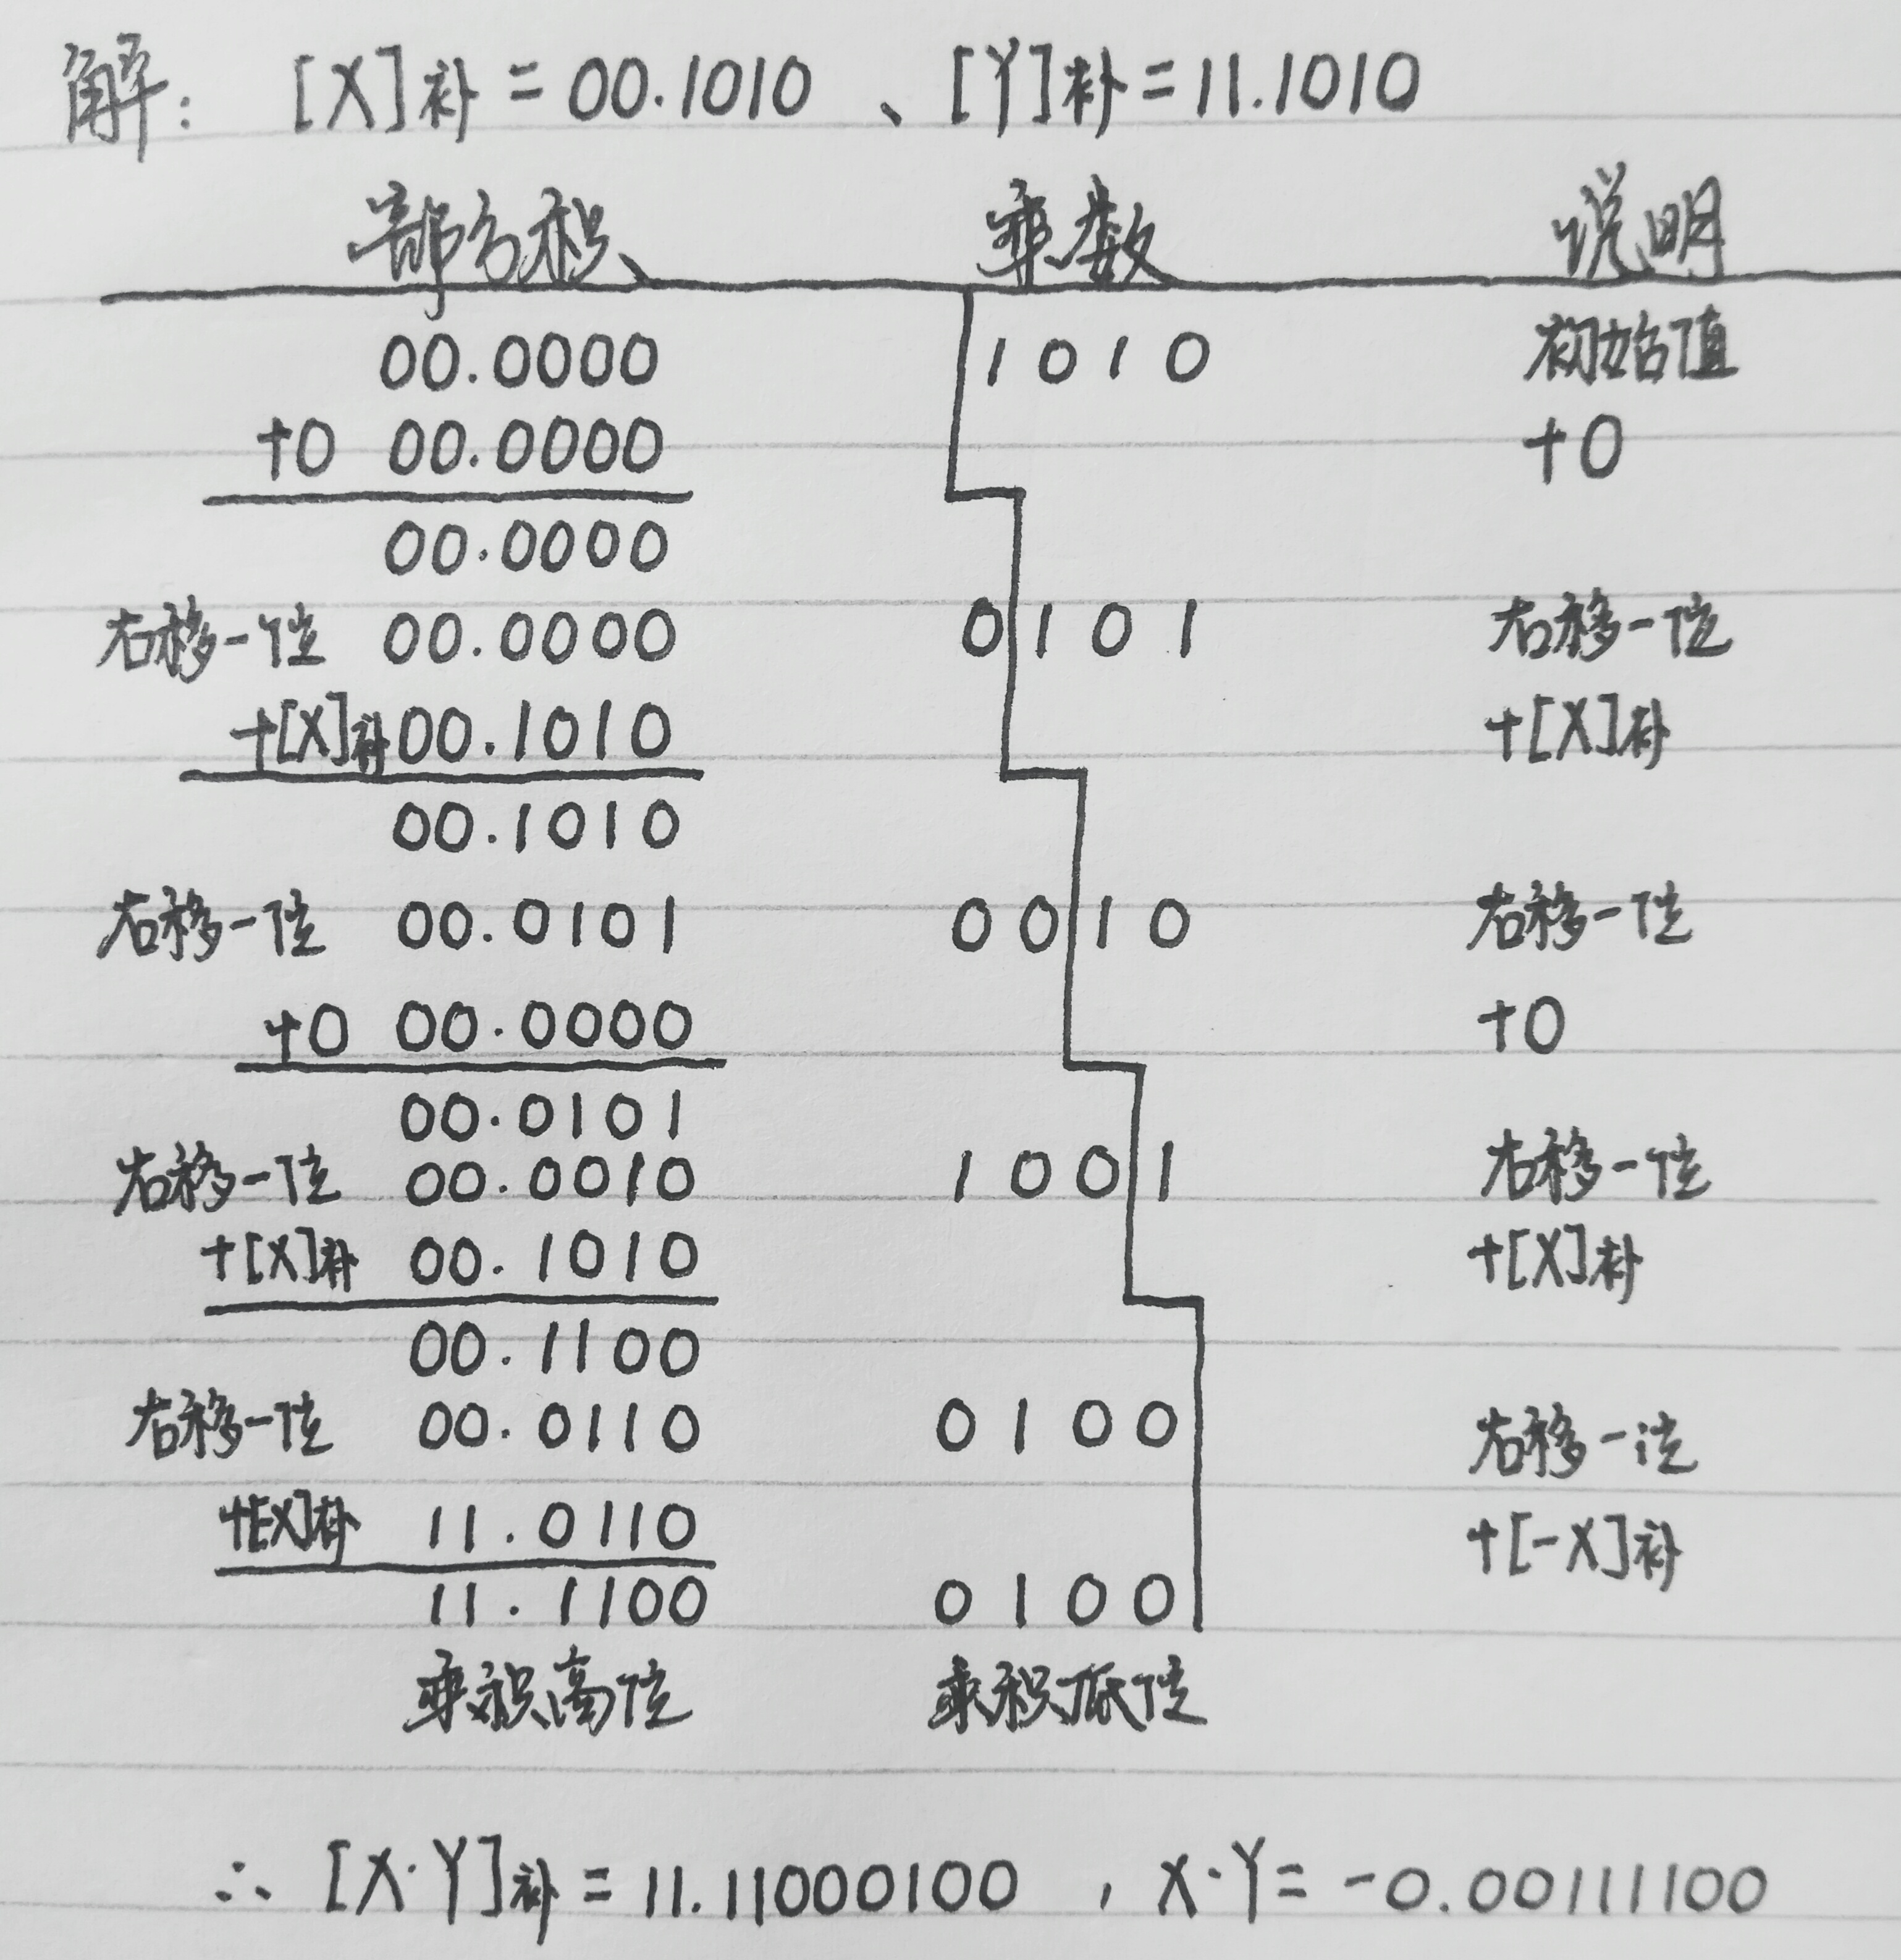 解: [X]补 = 00.1010 、[Y]补 = 11.1010
部分积 乘数 说明
00.0000 1010 初始值
+0 00.0000 +0
00.0000
右移一位 00.0000 0101 右移一位
+[X]补 00.1010 +[X]补
00.1010
右移一位 00.0101 0010 右移一位
+0 00.0000 +0
00.0101
右移一位 00.0010 1001 右移一位
+[X]补 00.1010 +[X]补
00.1100
右移一位 00.0110 0100 右移一位
+[-X]补 11.0110 +[-X]补
11.1100 0100
乘积高位 乘积低位
∴ [X·Y]补 = 11.11000100 , X·Y = -0.00111100